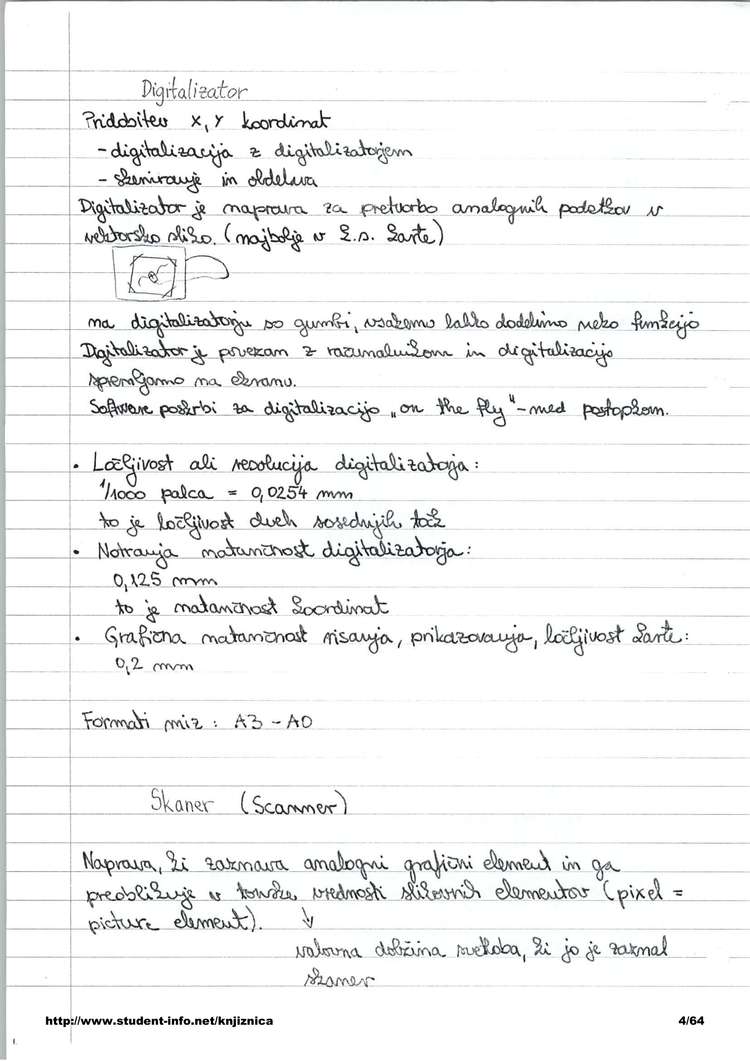 Digitalizator
Pridobitev x, y koordinat
- digitalizacija z digitalizatorjem
- skeniranje in obdelava
Digitalizator je naprava za pretvorbo analognih podatkov v
vektorsko sliko. (najbolje v k.s. karte)
na digitalizatorju so gumbi, vsakemu lahko dodelimo neko funkcijo
Digitalizator je povezan z računalnikom in digitalizacijo
spremljamo na ekranu.
Software poskrbi za digitalizacijo „on the fly“ - med postopkom.
• Ločljivost ali resolucija digitalizatorja:
1/1000 palca = 0,0254 mm
to je ločljivost dveh sosednjih točk
• Notranja natančnost digitalizatorja:
0,125 mm
to je natančnost koordinat
• Grafična natančnost risanja, prikazovanja, ločljivost karte:
0,2 mm
Formati miz: A3 - A0
Skaner (Scanner)
Naprava, ki zaznava analogni grafični element in ga
preoblikuje v tonske vrednosti slikovnih elementov (pixel =
picture element). ↓
valovna dolžina svetloba, ki jo je zaznal
skaner
http://www.student-info.net/knjiznica 4/64